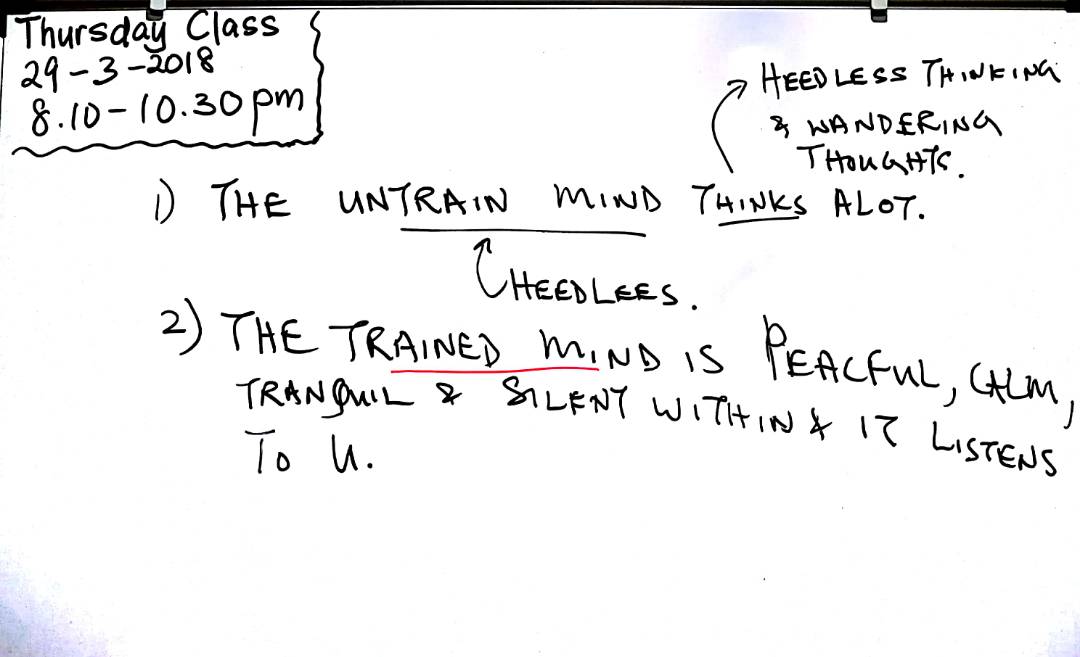 Thursday Class
29-3-2018
8.10-10.30pm
HEEDLESS THINKING
& WANDERING
THOUGHTS.
1) THE UNTRAIN MIND THINKS ALOT.
HEEDLEES.
2) THE TRAINED MIND IS PEACFUL, CALM,
TRANQUIL & SILENT WITHIN & IT LISTENS
TO U.